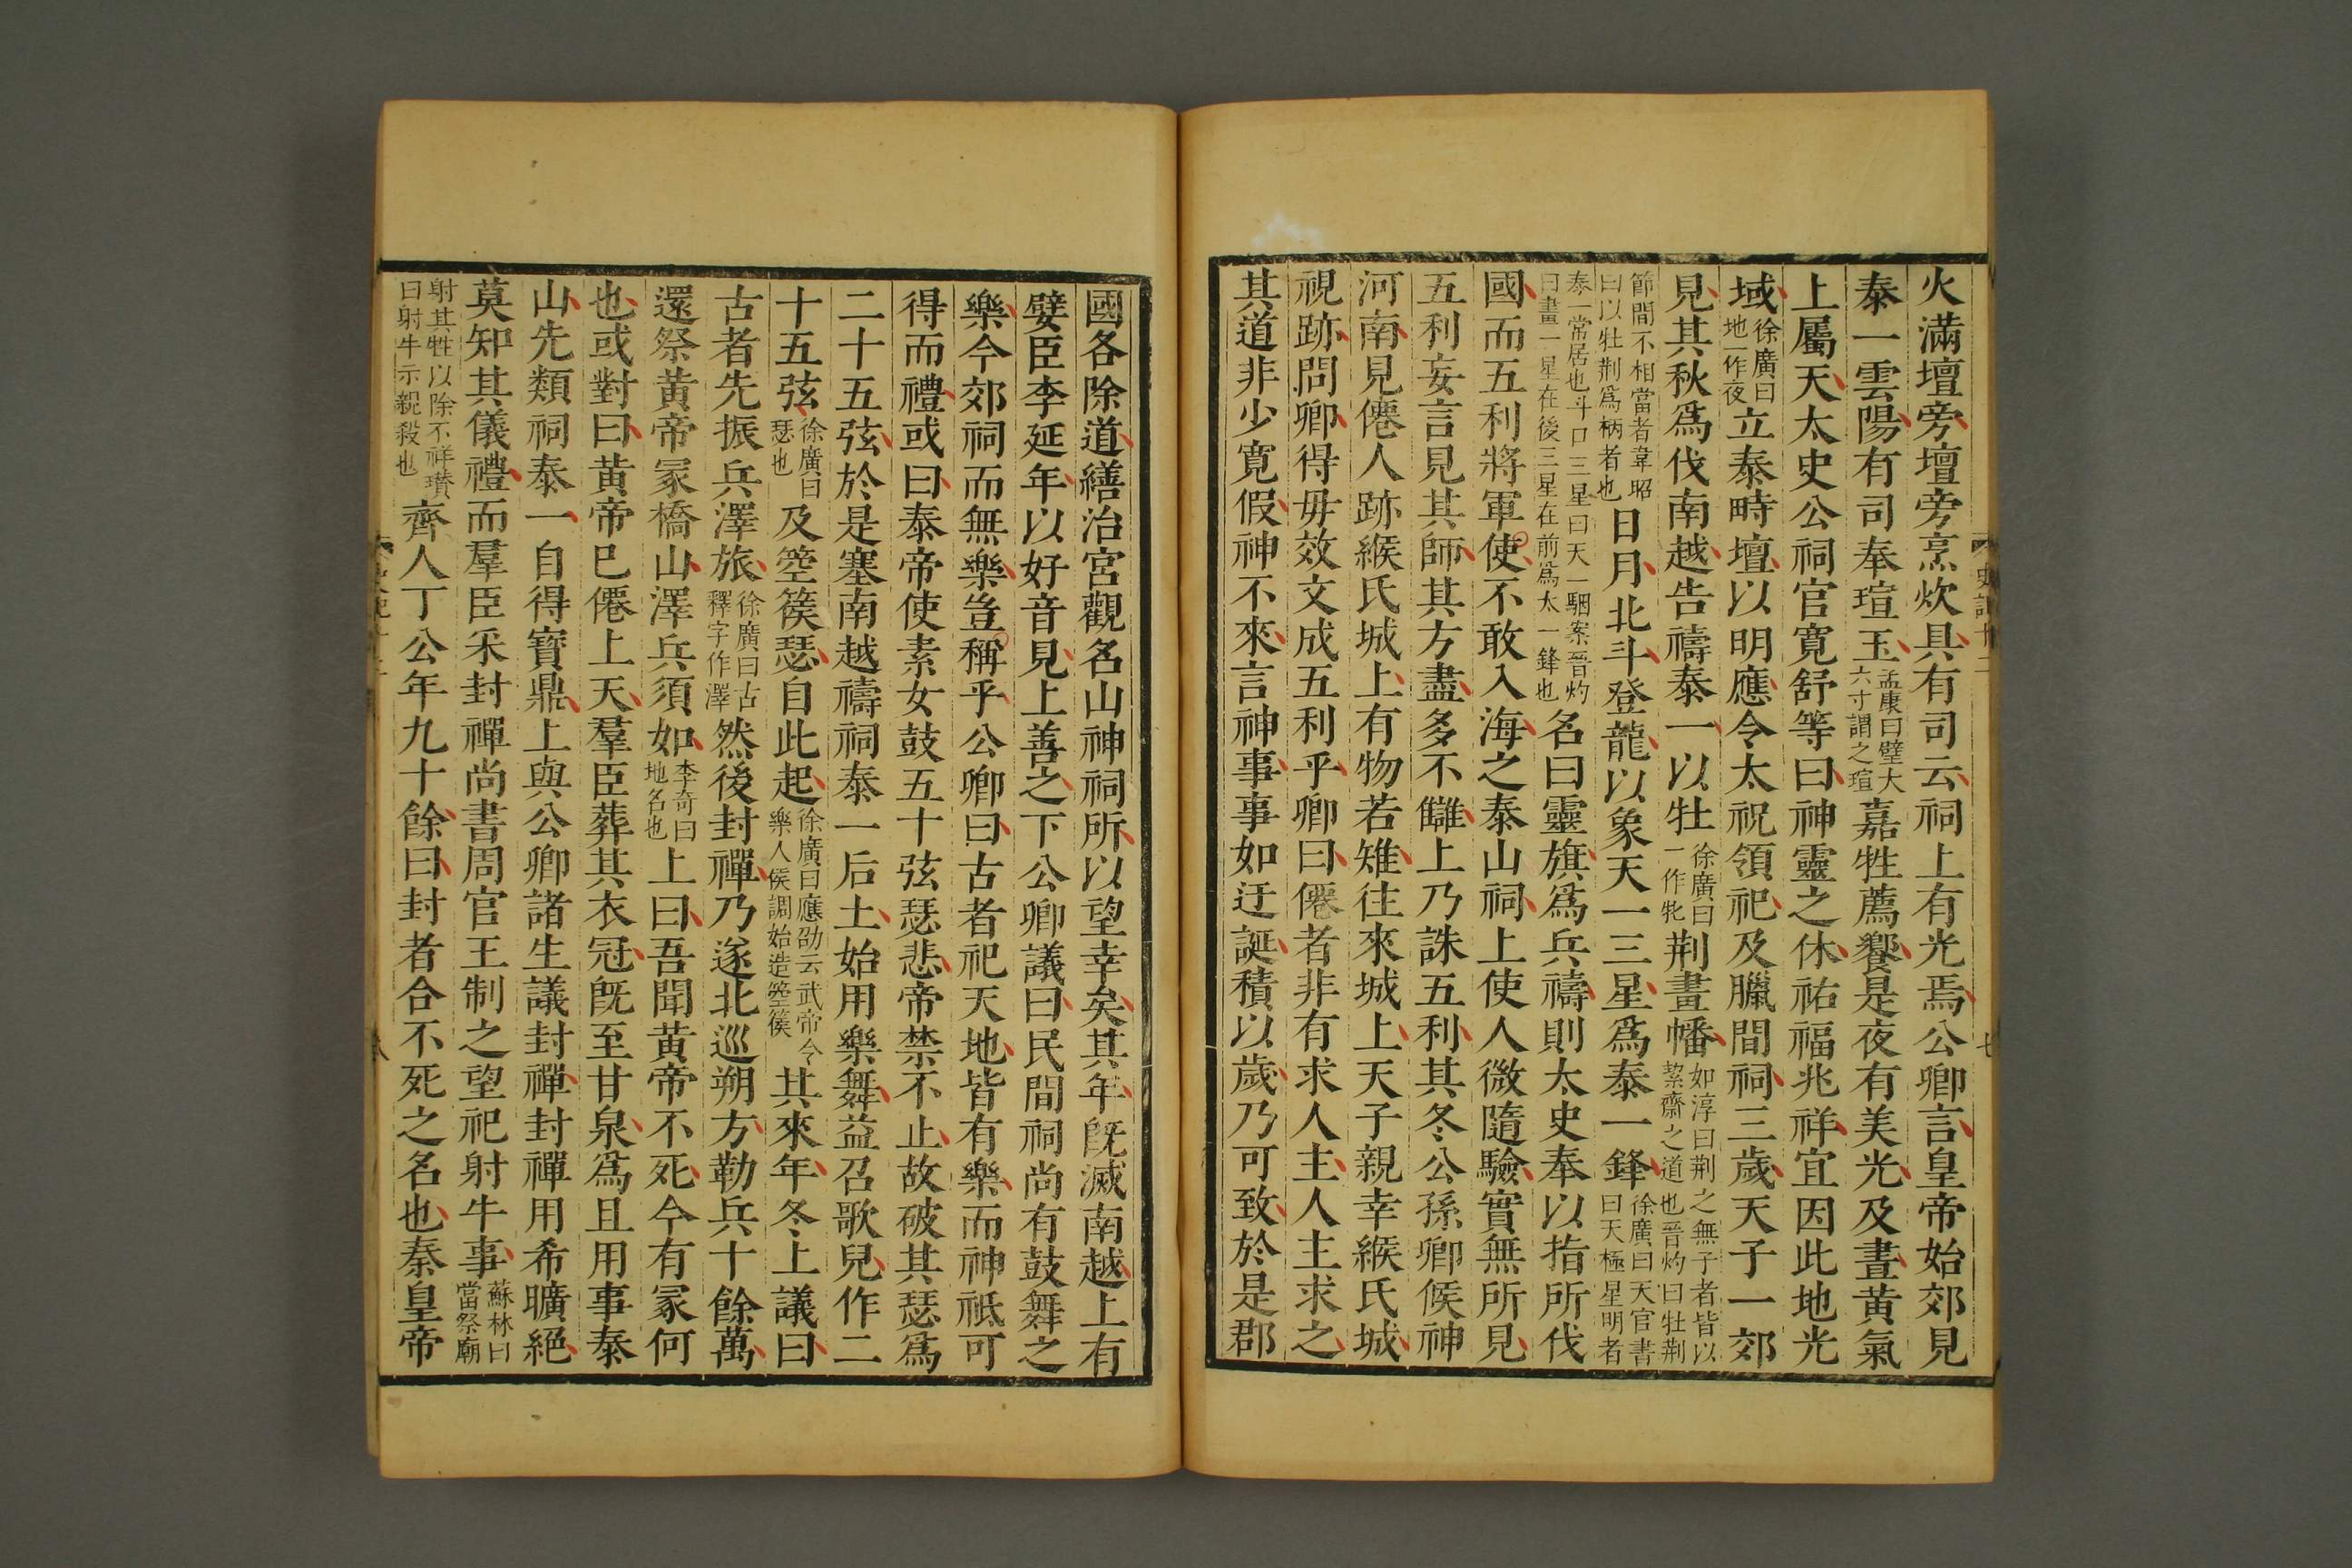 火滿壇旁壇旁烹炊具有司云祠上有光焉公卿言皇帝始郊見
泰一雲陽有司奉瑄玉孟康曰璧大六寸謂之瑄嘉牲薦饗是夜有美光及晝黃氣
上屬天太史公祠官寬舒等曰神靈之休祐福兆祥宜因此地光
域徐廣曰地一作夜立泰畤壇以明應令太祝領祀及臘間祠三歲天子一郊
見其秋爲伐南越告禱泰一以牡徐廣曰一作牝荆畫幡如淳曰荆之無子者皆以絜齋之道也晉灼曰牡荆
節間不相當者韋昭曰以牡荆爲柄者也日月北斗登龍以象天一三星爲泰一鋒徐廣曰天官書曰天極星明者
泰一常居也斗口三星曰天一駰案晉灼曰畫一星在後三星在前爲太一鋒也名曰靈旗爲兵禱則太史奉以指所伐
國而五利將軍使不敢入海之泰山祠上使人微隨驗實無所見
五利妄言見其師其方盡多不讎上乃誅五利其冬公孫卿候神
河南見僊人跡緱氏城上有物若雉往來城上天子親幸緱氏城
視跡問卿得毋效文成五利乎卿曰僊者非有求人主人主求之
其道非少寬假神不來言神事事如迂誕積以歲乃可致於是郡
史記十二
七
國各除道繕治宮觀名山神祠所以望幸矣其年旣滅南越上有
嬖臣李延年以好音見上善之下公卿議曰民間祠尚有鼓舞之
樂今郊祠而無樂豈稱乎公卿曰古者祀天地皆有樂而神祗可
得而禮或曰泰帝使素女鼓五十弦瑟悲帝禁不止故破其瑟爲
二十五弦於是塞南越禱祠泰一后土始用樂舞益召歌兒作二
十五弦徐廣曰瑟也及箜篌瑟自此起徐廣曰應劭云武帝令樂人侯調始造箜篌其來年冬上議曰
古者先振兵澤旅徐廣曰古釋字作澤然後封禪乃遂北巡朔方勒兵十餘萬
還祭黃帝冢橋山澤兵須如李奇曰地名也上曰吾聞黃帝不死今有冢何
也或對曰黃帝巳僊上天羣臣葬其衣冠旣至甘泉爲且用事泰
山先類祠泰一自得寶鼎上與公卿諸生議封禪封禪用希曠絕
莫知其儀禮而羣臣采封禪尚書周官王制之望祀射牛事蘇林曰當祭廟
射其牲以除不祥瓚曰射牛示親殺也齊人丁公年九十餘曰封者合不死之名也秦皇帝